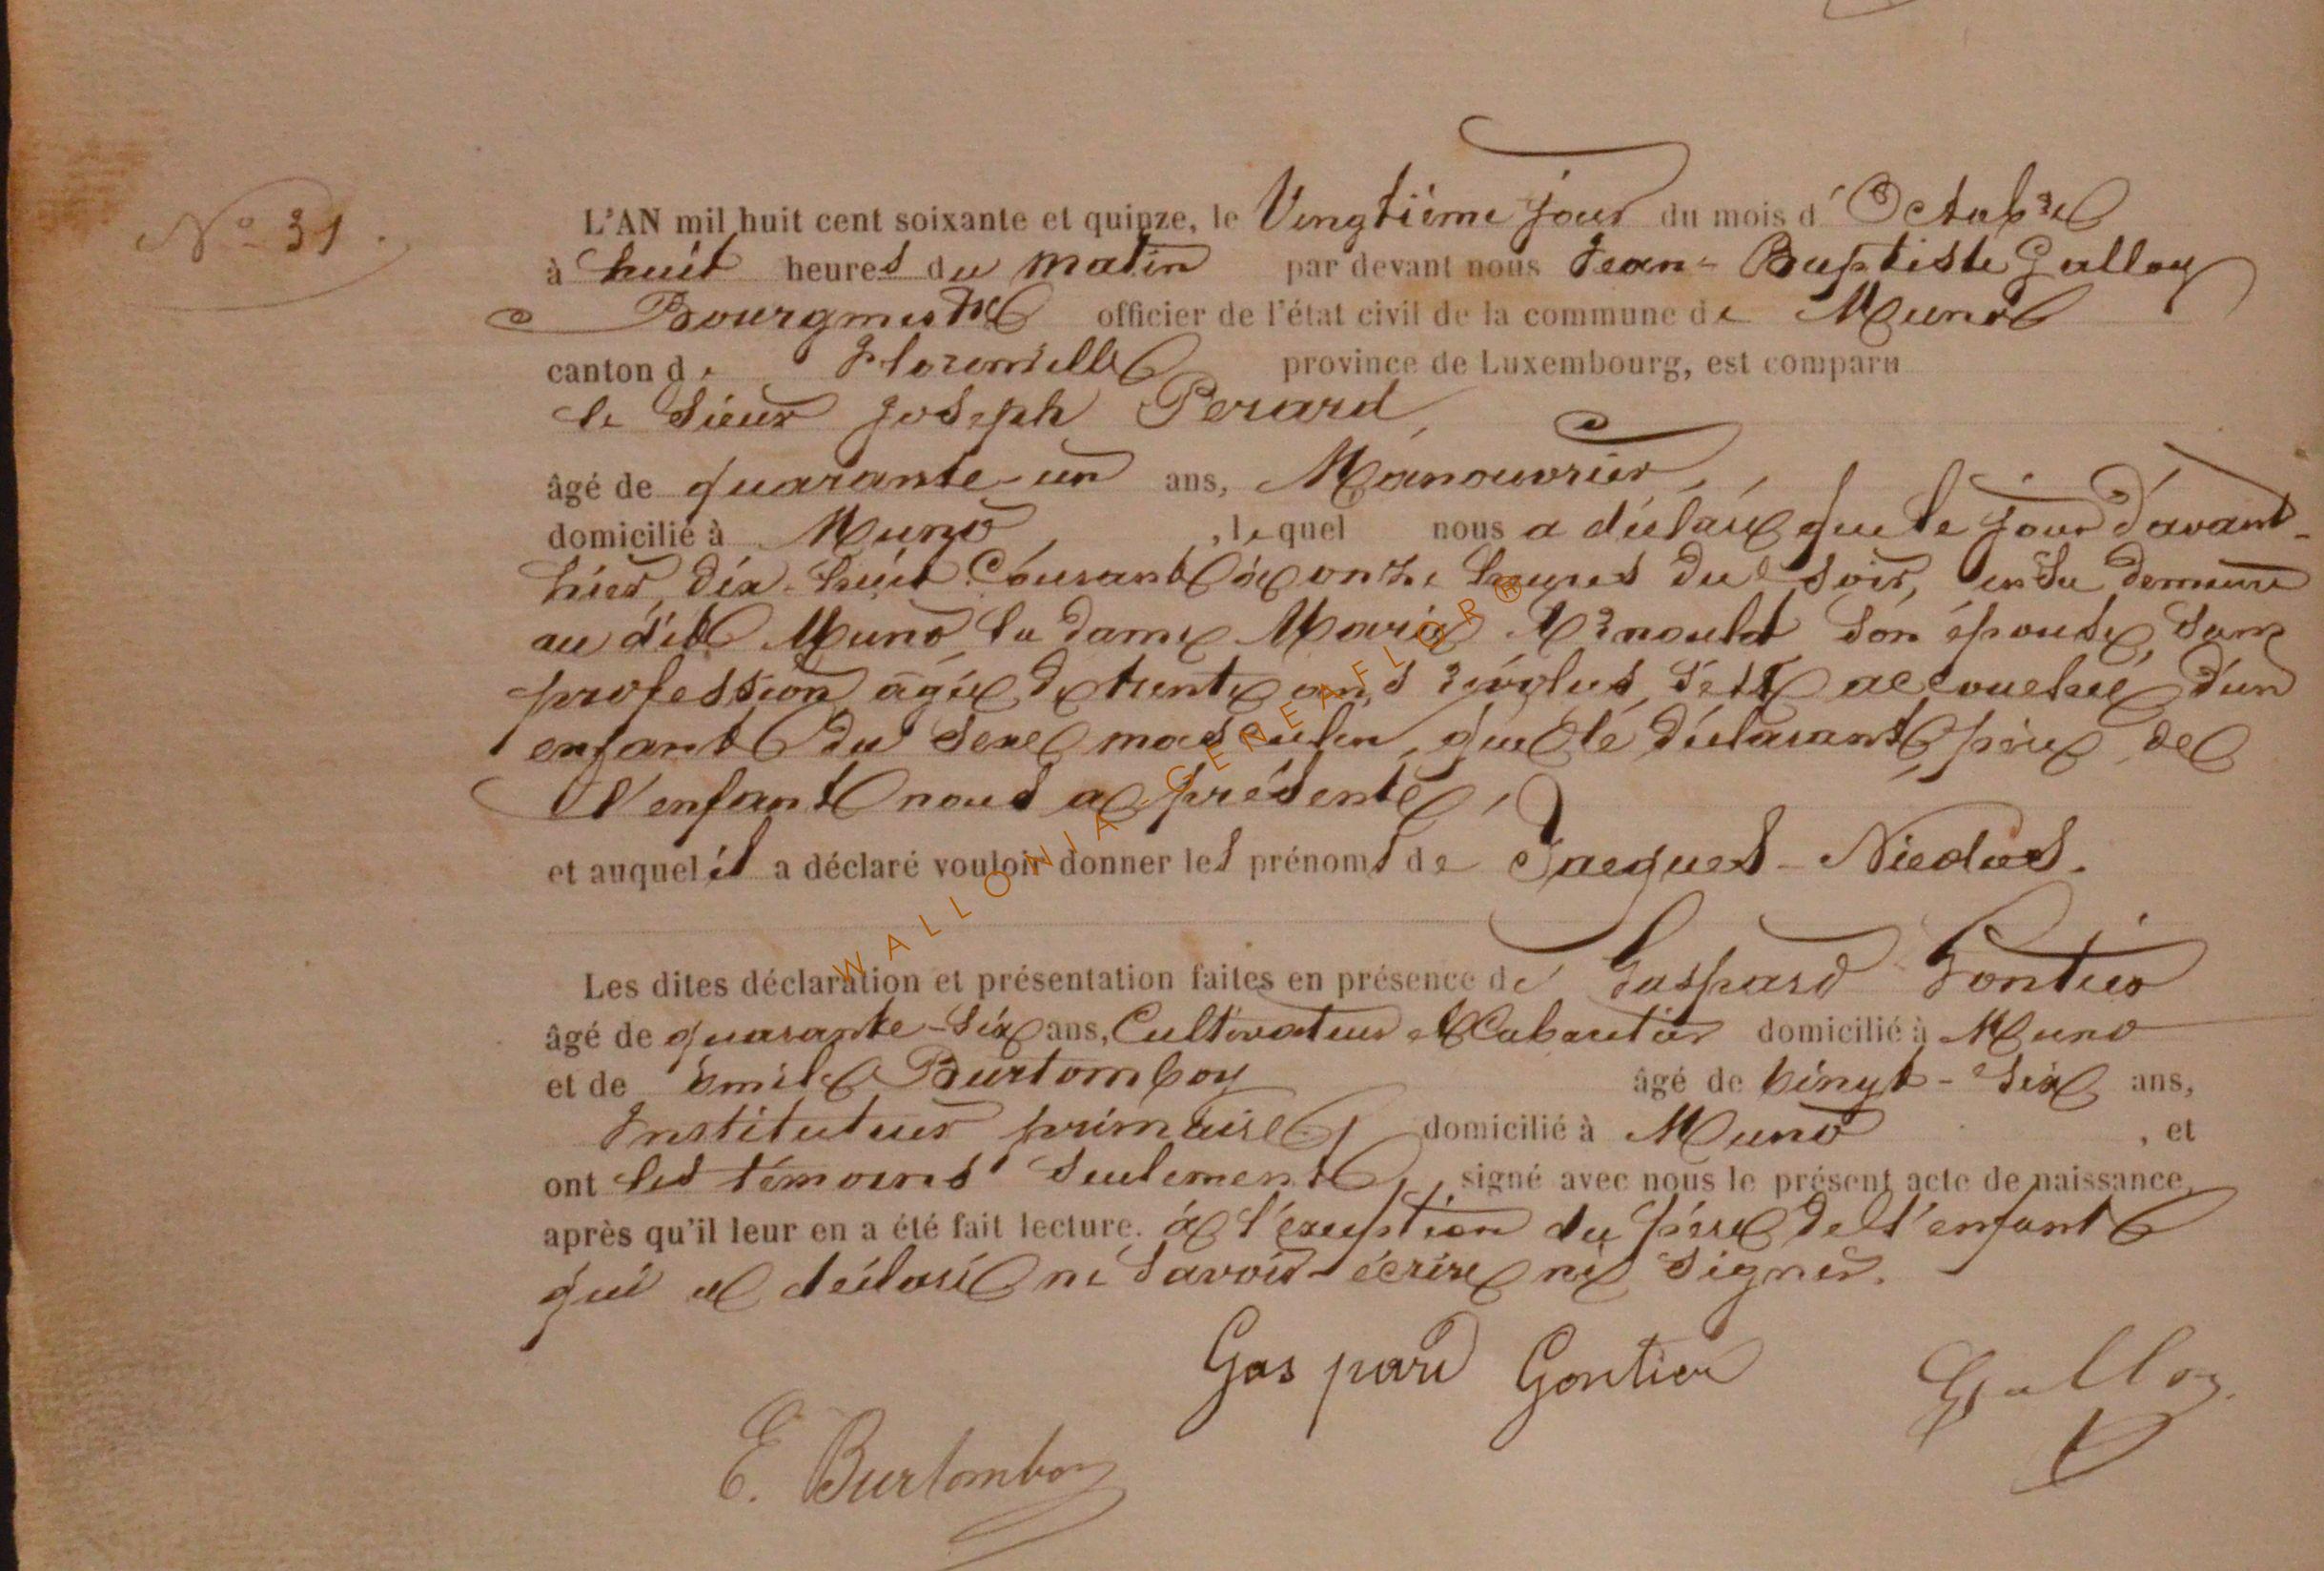 N° 31.
L'AN mil huit cent soixante et quinze, le Vingtième jour du mois d'Octobre
à huit heures du matin par devant nous Jean-Baptiste Galloy
Bourgmestre officier de l'état civil de la commune de Muno
canton de Florenville province de Luxembourg, est comparu
le sieur Joseph Perard,
âgé de quarante-un ans, Manouvrier,
domicilié à Muno, lequel nous a déclaré que le jour d'avant-
hier, dix-huit Courant à onze heures du soir, en sa demeure
au dit Muno, la dame Marie son épouse, sans
profession, agée de trente ans révolus, s'est accouchée d'un
enfant du sexe masculin, que le déclarant, père de
l'enfant nous a présenté,
et auquel il a déclaré vouloir donner les prénoms de Jacques-Nicolas.
Les dites déclaration et présentation faites en présence de Gaspard Gontier
âgé de quarante-six ans, Cultivateur & Cabaretier domicilié à Muno
et de Emile Burtomboy âgé de vingt-six ans,
Instituteur primaire, domicilié à Muno, et
ont les témoins seulement, signé avec nous le présent acte de naissance,
après qu'il leur en a été fait lecture. à l'exception du père de l'enfant
qui a déclaré ne savoir écrire ni signer.
Gaspard Gontier Galloy
E. Burtomboy
WALLONIA-GENEAFLOR®